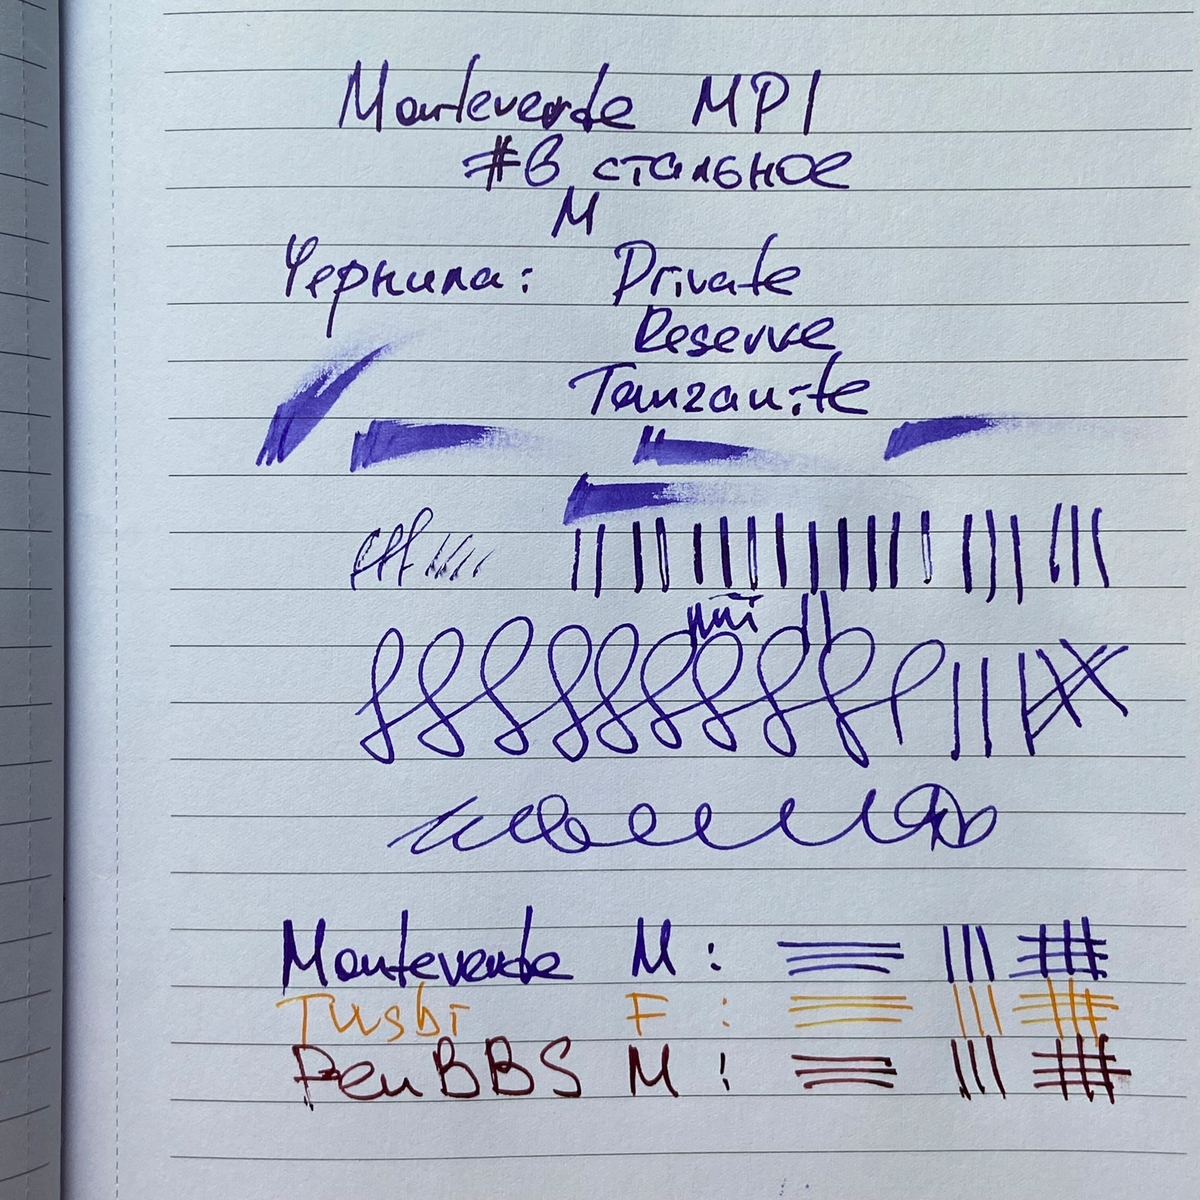 Monteverde MP1
#6 стальное
M
Чернила: Private
Reserve
Tanzanite
Monteverde M:
Twsbi F :
PenBBS M :